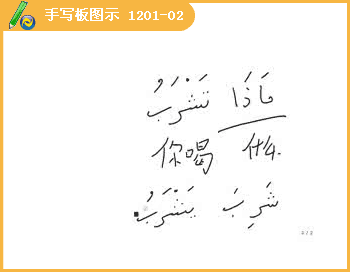 手写板图示 1201-02
مَاذَا تَشْرَبُ
你喝 什么.
شَرِبَ يَشْرَبُ
2 / 2